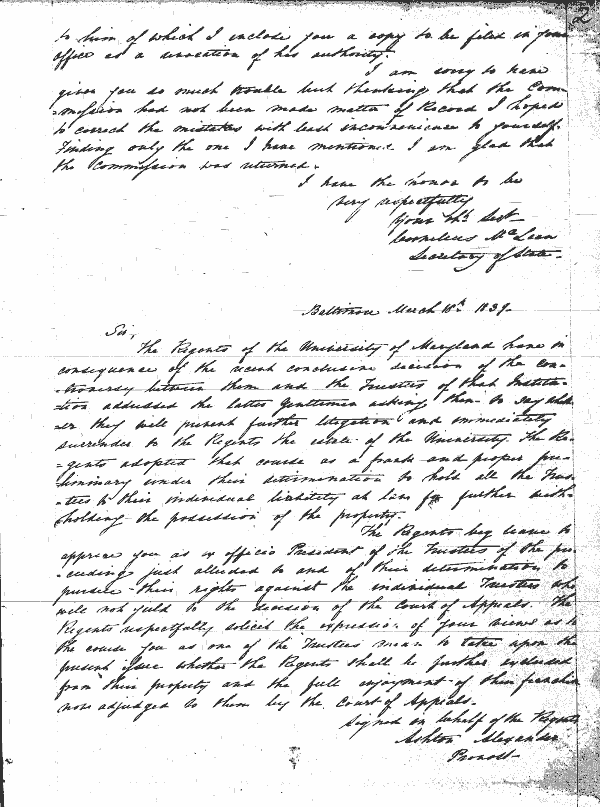 2
to him of which I include you a copy to be filed in your
office as a revocation of his authority.
I am sorry to have
given you so much trouble but thinking that the Com-
-mission had not been made matter of Record I hoped
to correct the mistakes with least inconvenience to yourself.
Finding only the one I have mentioned I am glad that
the Commission was returned.
I have the honor to be
very respectfully
Your Obt Servt
Cornelius McLean
Secretary of State
Baltimore March 18th 1839.
Sir,
The Regents of the University of Maryland have in
consequence of the recent conclusive decision of the con-
-troversy between them and the Trustees of that Institu-
-tion addressed the latter Gentlemen asking them to say wheth-
-er they will prevent further litigation and immediately
surrender to the Regents the estate of the University. The Re-
-gents adopted that course as a frank and proper pre-
-liminary under their determination to hold all the Trus-
-tees to their individual liability at law for further with-
-holding the possession of the property.
The Regents beg leave to
apprize you as ex officio President of the Trustees of the pro-
-ceeding just alluded to and of their determination to
pursue their rights against the individual Trustees who
will not yield to the decision of the Court of Appeals. The
Regents respectfully solicit the expression of your views as to
the course you as one of the Trustees mean to take upon the
present issue whether the Regents shall be further excluded
from their property and the full enjoyment of their franchise
now adjudged to them by the Court of Appeals.
Signed on behalf of the Regents
Ashton Alexander
Provost